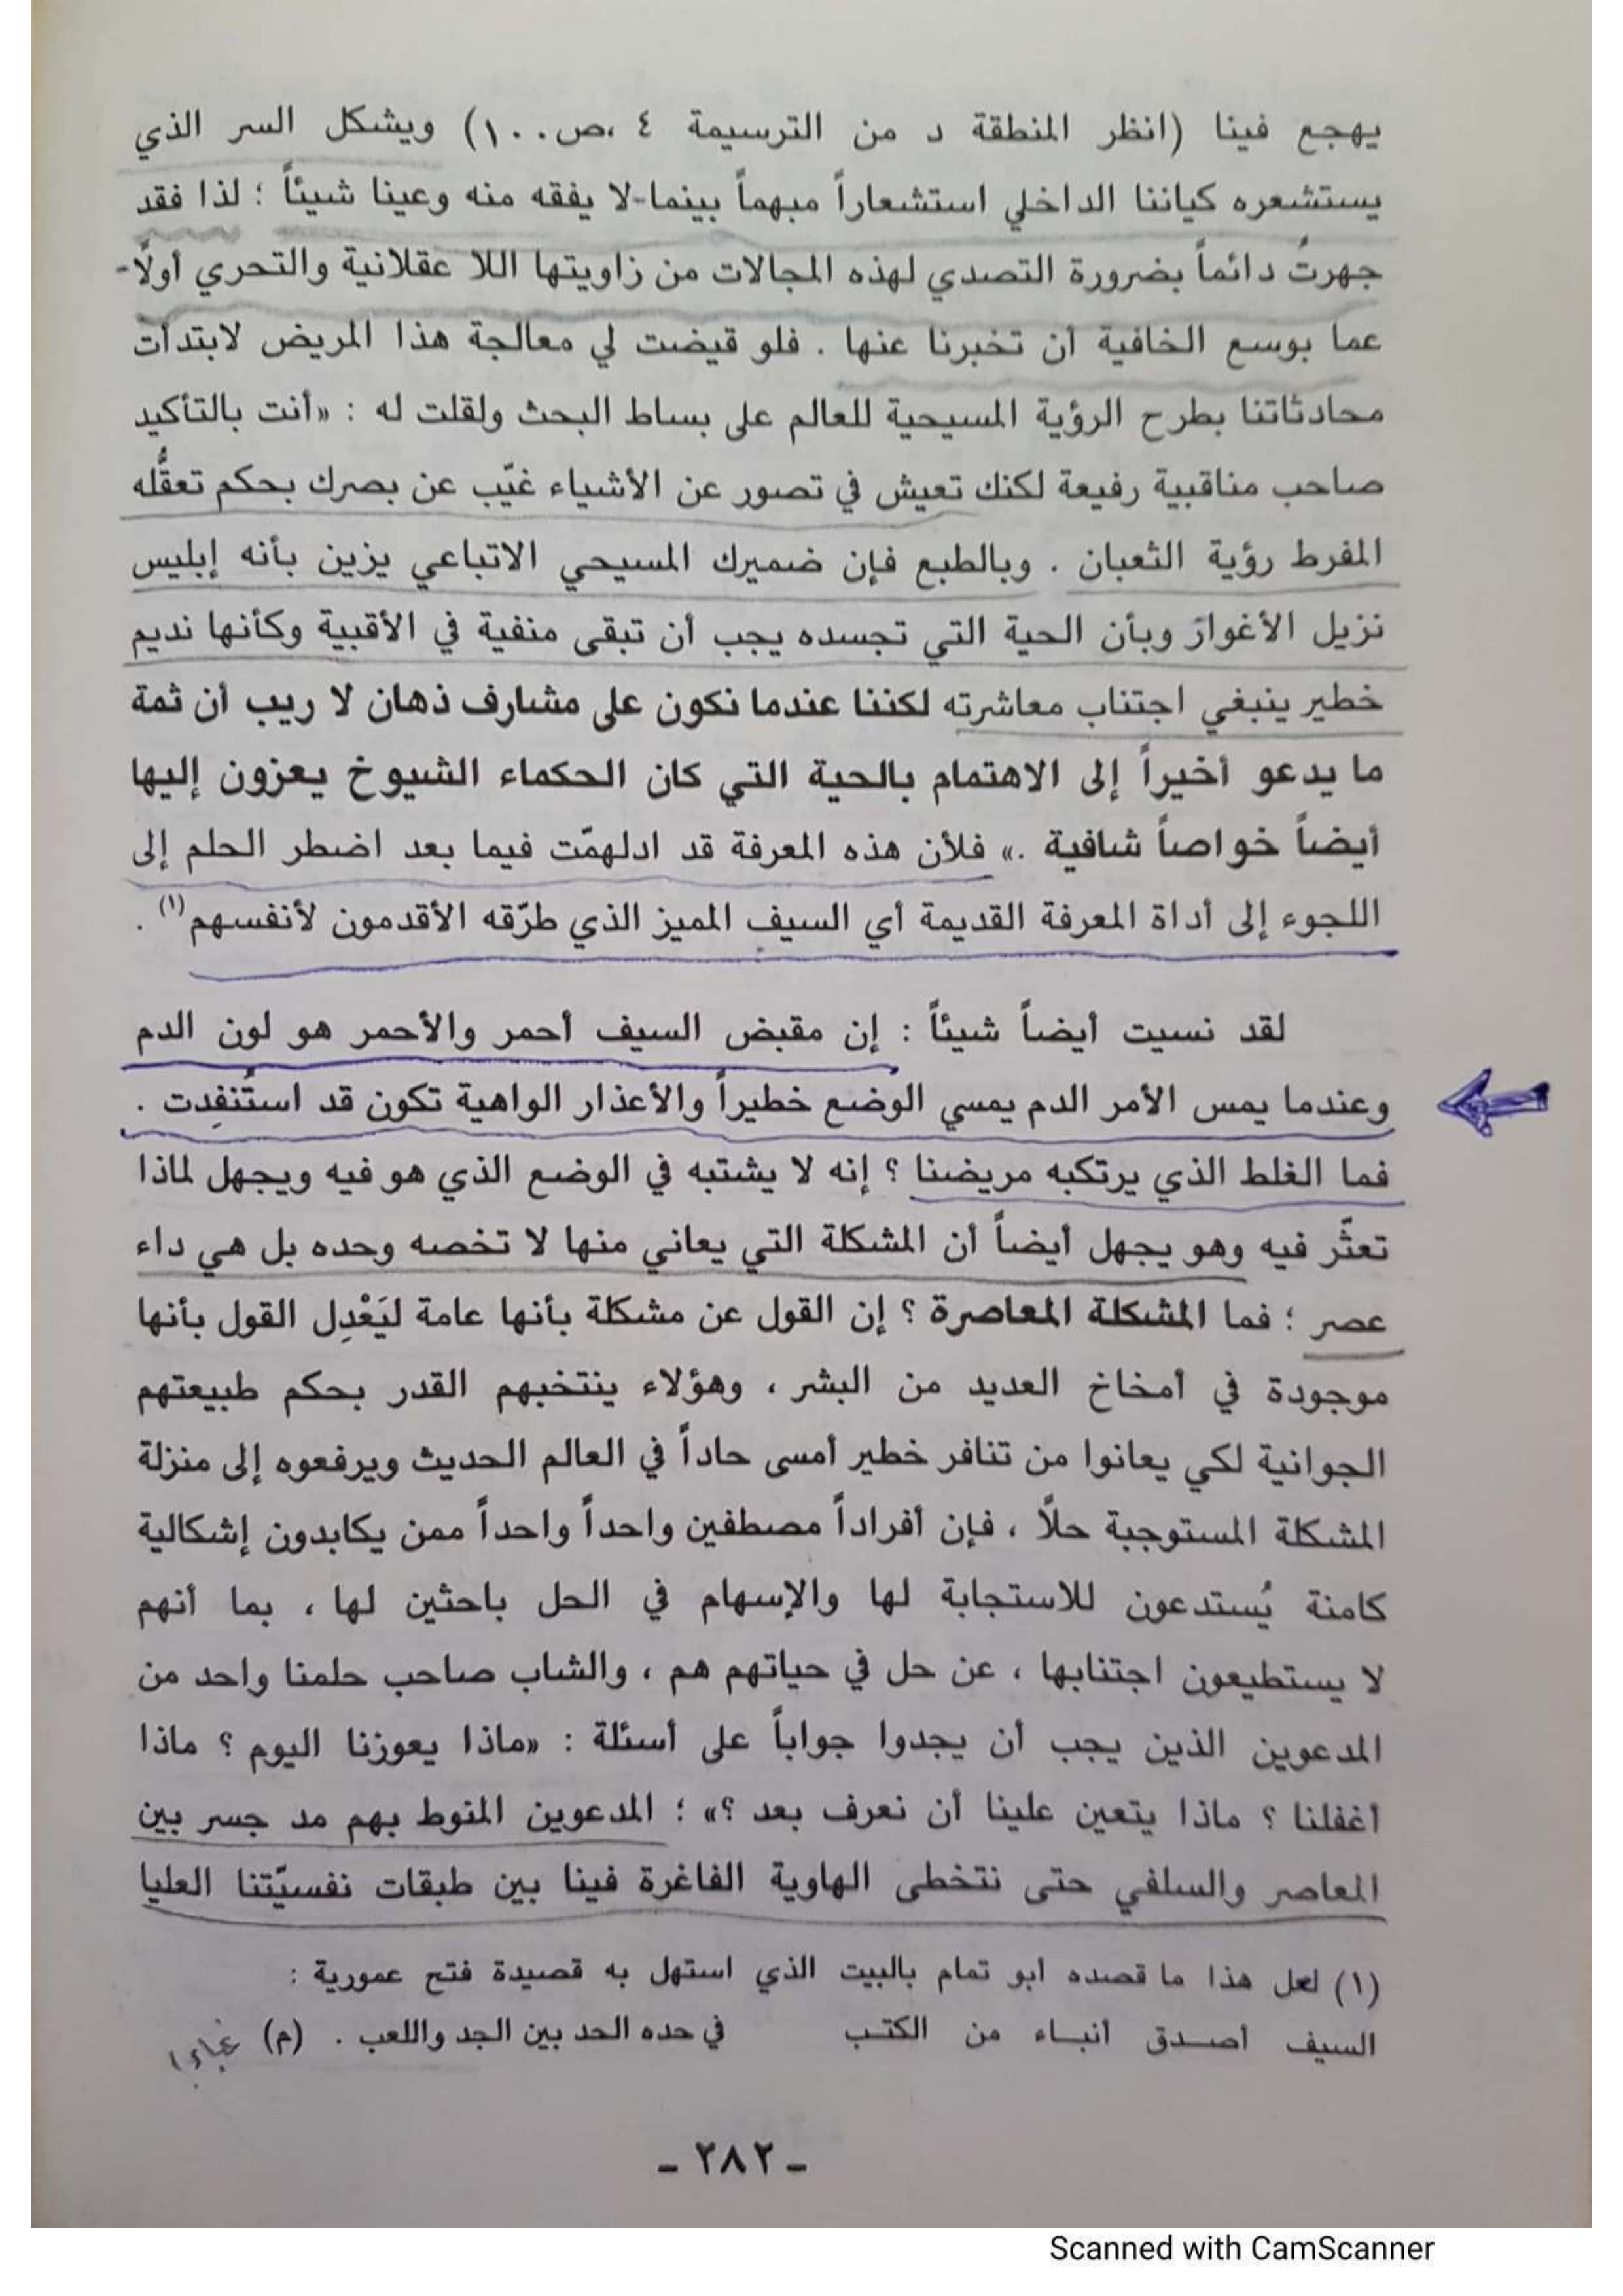 يهجع فينا (انظر المنطقة د من الترسيمة ٤ ،ص١٠٠) ويشكل السر الذي
يستشعره كياننا الداخلي استشعاراً مبهماً بينما-لا يفقه منه وعينا شيئاً ؛ لذا فقد
جهرتُ دائماً بضرورة التصدي لهذه المجالات من زاويتها اللا عقلانية والتحري أولًا-
عما بوسع الخافية أن تخبرنا عنها . فلو قيضت لي معالجة هذا المريض لابتدأت
محادثاتنا بطرح الرؤية المسيحية للعالم على بساط البحث ولقلت له : «أنت بالتأكيد
صاحب مناقبية رفيعة لكنك تعيش في تصور عن الأشياء غيّب عن بصرك بحكم تعقُّله
المفرط رؤية الثعبان . وبالطبع فإن ضميرك المسيحي الاتباعي يزين بأنه إبليس
نزيل الأغوار وبأن الحية التي تجسده يجب أن تبقى منفية في الأقبية وكأنها نديم
خطير ينبغي اجتناب معاشرته لكننا عندما نكون على مشارف ذهان لا ريب أن ثمة
ما يدعو أخيراً إلى الاهتمام بالحية التي كان الحكماء الشيوخ يعزون إليها
أيضاً خواصاً شافية .» فلأن هذه المعرفة قد ادلهمّت فيما بعد اضطر الحلم إلى
اللجوء إلى أداة المعرفة القديمة أي السيف المميز الذي طرّقه الأقدمون لأنفسهم(١) .
لقد نسيت أيضاً شيئاً : إن مقبض السيف أحمر والأحمر هو لون الدم
وعندما يمس الأمر الدم يمسي الوضع خطيراً والأعذار الواهية تكون قد استُنفِدت .
فما الغلط الذي يرتكبه مريضنا ؟ إنه لا يشتبه في الوضع الذي هو فيه ويجهل لماذا
تعثّر فيه وهو يجهل أيضاً أن المشكلة التي يعاني منها لا تخصه وحده بل هي داء
عصر ؛ فما المشكلة المعاصرة ؟ إن القول عن مشكلة بأنها عامة ليَعْدِل القول بأنها
موجودة في أمخاخ العديد من البشر ، وهؤلاء ينتخبهم القدر بحكم طبيعتهم
الجوانية لكي يعانوا من تنافر خطير أمسى حاداً في العالم الحديث ويرفعوه إلى منزلة
المشكلة المستوجبة حلًا ، فإن أفراداً مصطفين واحداً واحداً ممن يكابدون إشكالية
كامنة يُستدعون للاستجابة لها والإسهام في الحل باحثين لها ، بما أنهم
لا يستطيعون اجتنابها ، عن حل في حياتهم هم ، والشاب صاحب حلمنا واحد من
المدعوين الذين يجب أن يجدوا جواباً على أسئلة : «ماذا يعوزنا اليوم ؟ ماذا
أغفلنا ؟ ماذا يتعين علينا أن نعرف بعد ؟» ؛ المدعوين المنوط بهم مد جسر بين
المعاصر والسلفي حتى نتخطى الهاوية الفاغرة فينا بين طبقات نفسيّتنا العليا
(١) لعل هذا ما قصده أبو تمام بالبيت الذي استهل به قصيدة فتح عمورية :
السيف أصدق أنباء من الكتب في حده الحد بين الجد واللعب . (م)
- ٢٨٢ -
Scanned with CamScanner